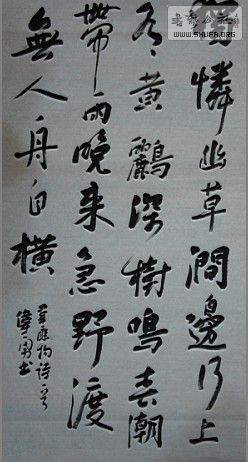 書法公社
WWW.SHUFA.ORG
獨憐幽草澗邊行上
有黃鸝深樹鳴春潮
帶雨晚来急野渡
無人舟自橫
韋應物詩
偉書